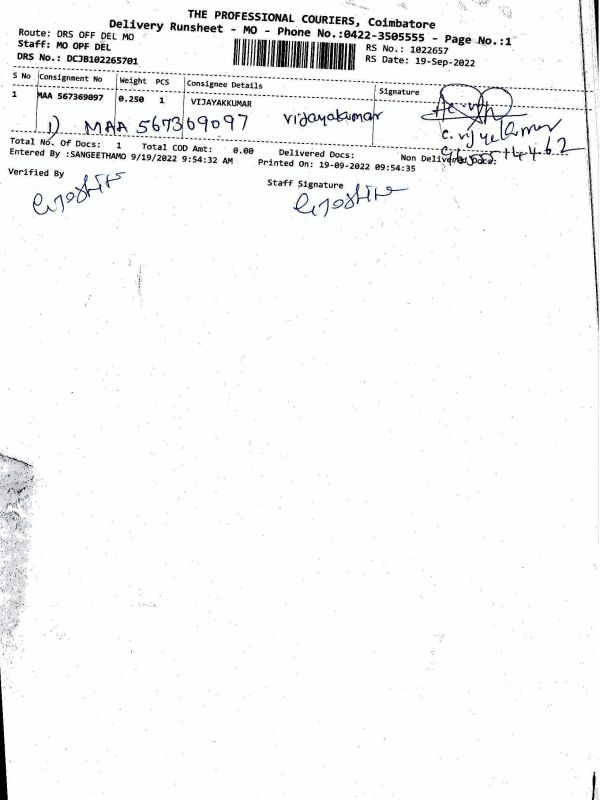 THE PROFESSIONAL COURIERS, Coimbatore
Delivery Runsheet - MO - Phone No.:0422-3505555 - Page No.:1
Route: DRS OFF DEL MO
Staff: MO OPF DEL
DRS No.: DCJB102265701
RS No.: 1022657
RS Date: 19-Sep-2022
S No Consignment No Weight PCS Consignee Details Signature
1 MAA 567369097 0.250 1 VIJAYAKKUMAR
1) MAA 567369097 vijayakumar
C. vijyakumar
Total No. Of Docs: 1 Total COD Amt: 0.00 Delivered Docs: Non Delivered Docs:
Entered By :SANGEETHAMO 9/19/2022 9:54:32 AM Printed On: 19-09-2022 09:54:35
Verified By
Staff Signature